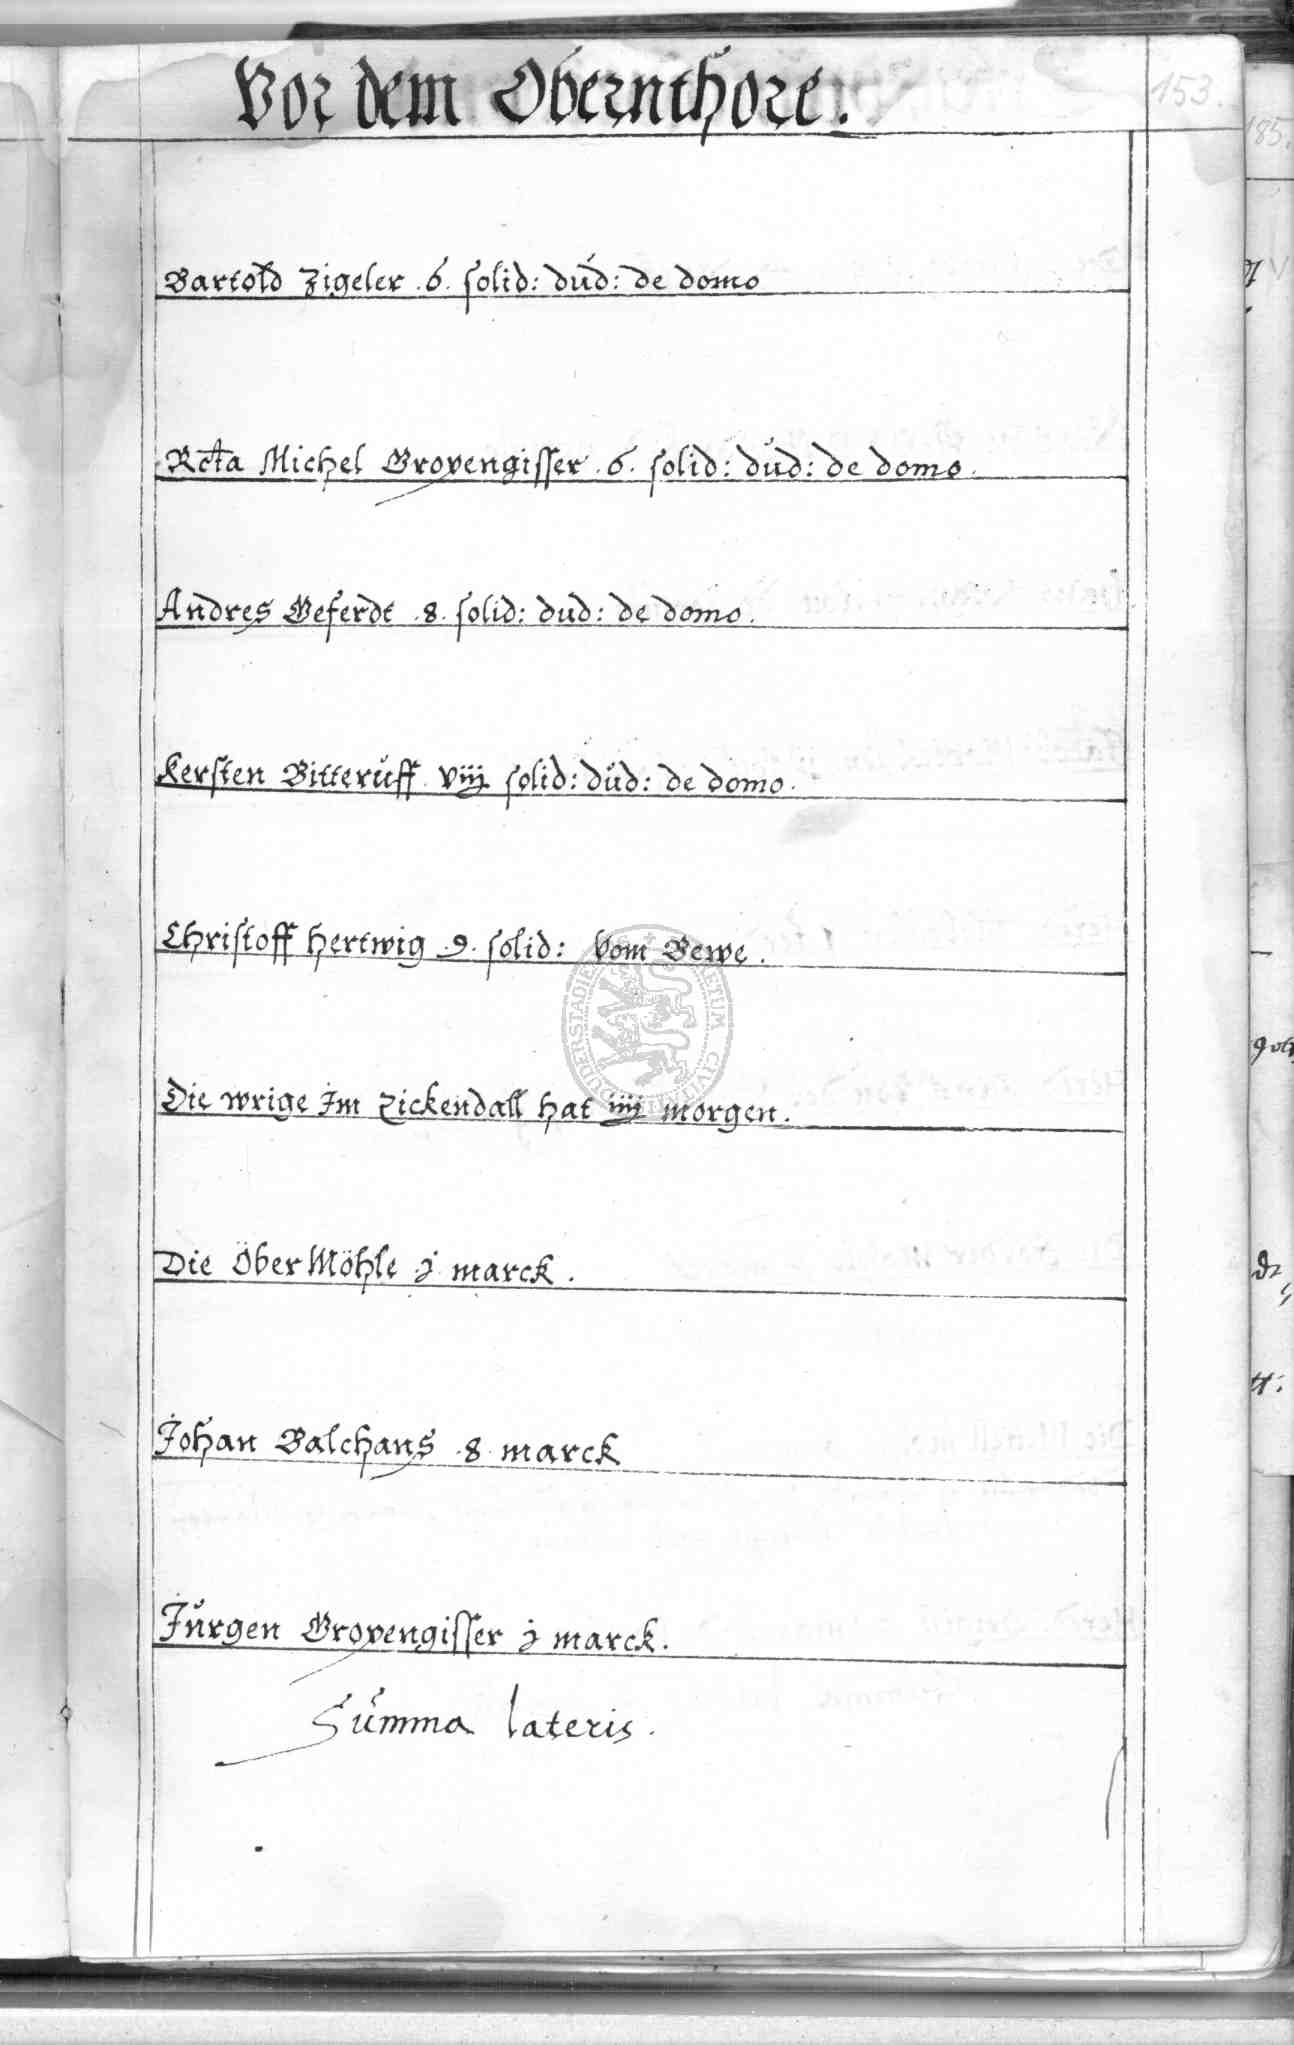 Vor dem Obernthore.
153.
185.
Bartold Zigeler .6. solid: dud: de domo
Rcta Michel Grovengisser .6. solid: dud: de domo.
Andres Geferdt .8. solid: dud: de domo.
Kersten Bitteruff viij solid: dud: de domo.
Christoff Hertwig .9. solid: vom Gewe.
Die wrige Im Zickendall hat iiij morgen.
Die Öber Möhle j marck.
Johan Balchans .8. marck
Jürgen Grovengisser j marck.
Summa lateris.